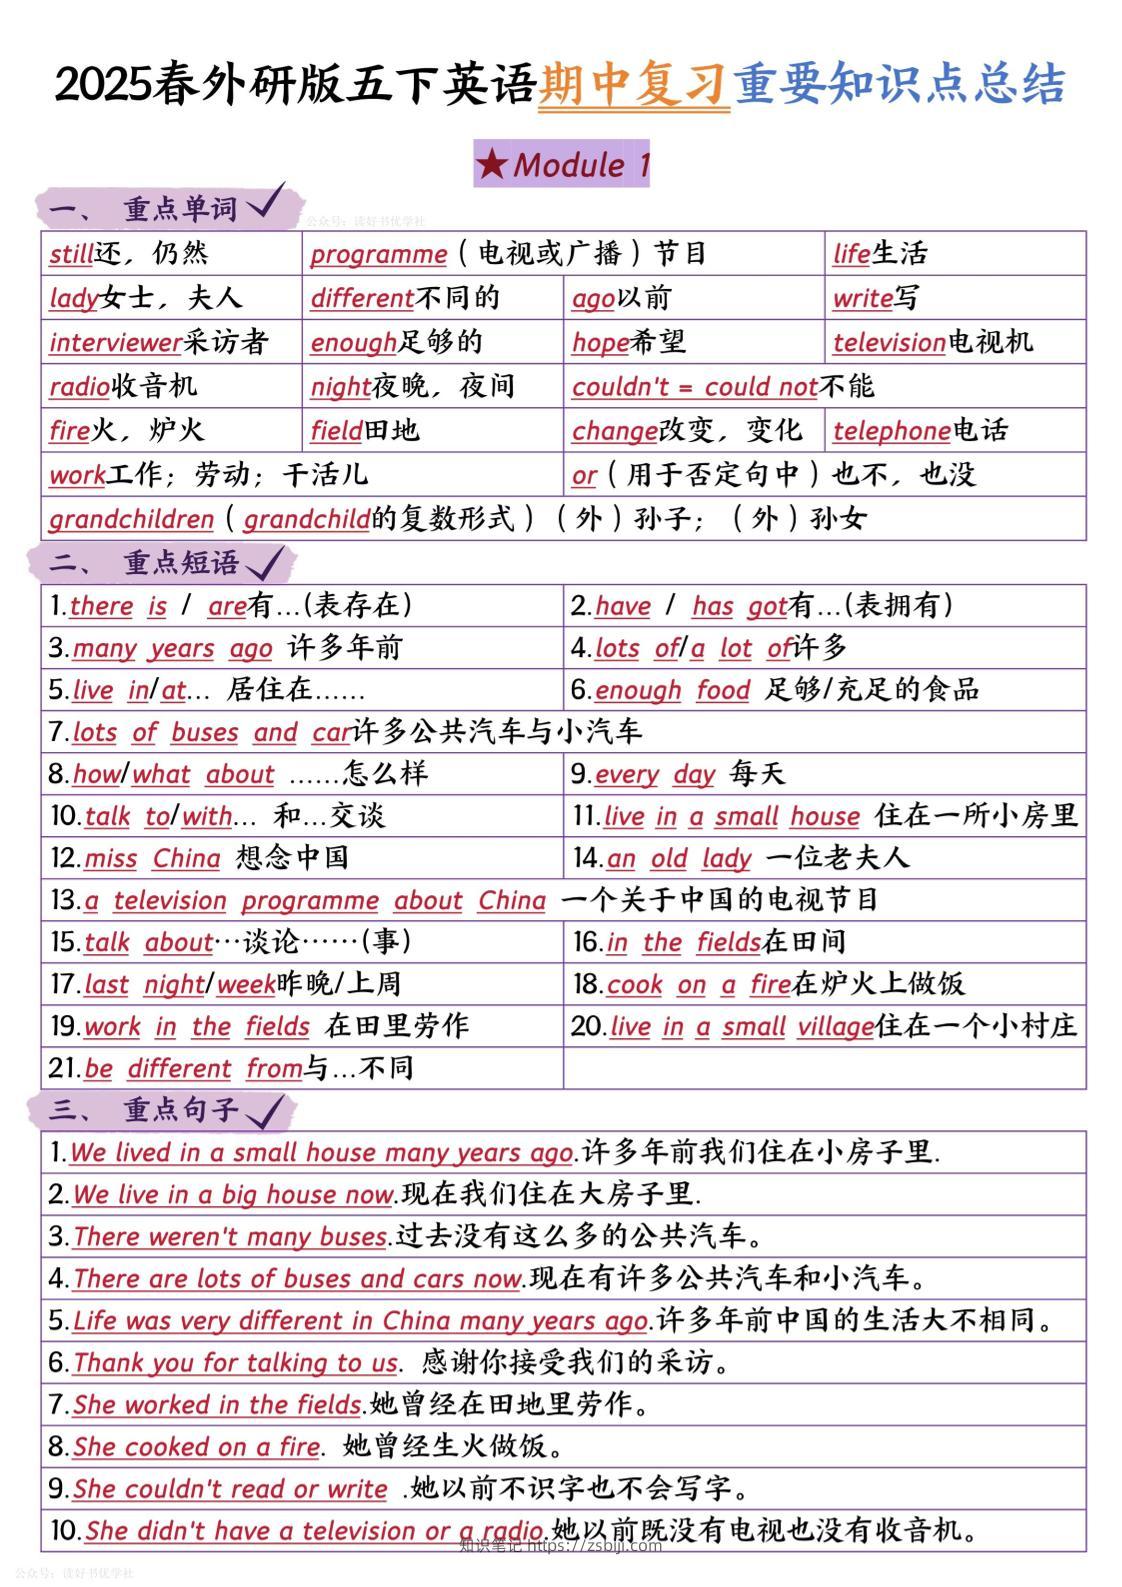 2025春外研版五下英语期中复习重要知识点总结
★Module 1
一、 重点单词
公众号：读好书优学社
still还，仍然 programme（电视或广播）节目 life生活
lady女士，夫人 different不同的 ago以前 write写
interviewer采访者 enough足够的 hope希望 television电视机
radio收音机 night夜晚，夜间 couldn't = could not不能
fire火，炉火 field田地 change改变，变化 telephone电话
work工作；劳动；干活儿 or（用于否定句中）也不，也没
grandchildren（grandchild的复数形式）（外）孙子；（外）孙女
二、 重点短语
1.there is / are有…(表存在) 2.have / has got有…(表拥有)
3.many years ago 许多年前 4.lots of/a lot of许多
5.live in/at… 居住在…… 6.enough food 足够/充足的食品
7.lots of buses and car许多公共汽车与小汽车
8.how/what about ……怎么样 9.every day 每天
10.talk to/with… 和…交谈 11.live in a small house 住在一所小房里
12.miss China 想念中国 14.an old lady 一位老夫人
13.a television programme about China 一个关于中国的电视节目
15.talk about…谈论……(事) 16.in the fields在田间
17.last night/week昨晚/上周 18.cook on a fire在炉火上做饭
19.work in the fields 在田里劳作 20.live in a small village住在一个小村庄
21.be different from与…不同
三、 重点句子
1.We lived in a small house many years ago.许多年前我们住在小房子里.
2.We live in a big house now.现在我们住在大房子里.
3.There weren't many buses.过去没有这么多的公共汽车。
4.There are lots of buses and cars now.现在有许多公共汽车和小汽车。
5.Life was very different in China many years ago.许多年前中国的生活大不相同。
6.Thank you for talking to us. 感谢你接受我们的采访。
7.She worked in the fields.她曾经在田地里劳作。
8.She cooked on a fire. 她曾经生火做饭。
9.She couldn't read or write .她以前不识字也不会写字。
10.She didn't have a television or a radio.她以前既没有电视也没有收音机。
知识笔记 https://zsbiji.com
公众号：读好书优学社